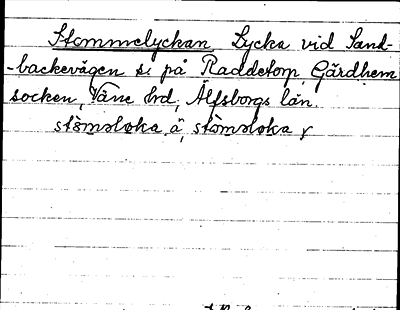 Stommelyckan, Lycka vid Sand-
-backevägen s: på Raddetorp, Gärdhem
socken, Väne hrd, Älfsborgs län.
stòməlɔka, ä, stòmələka y